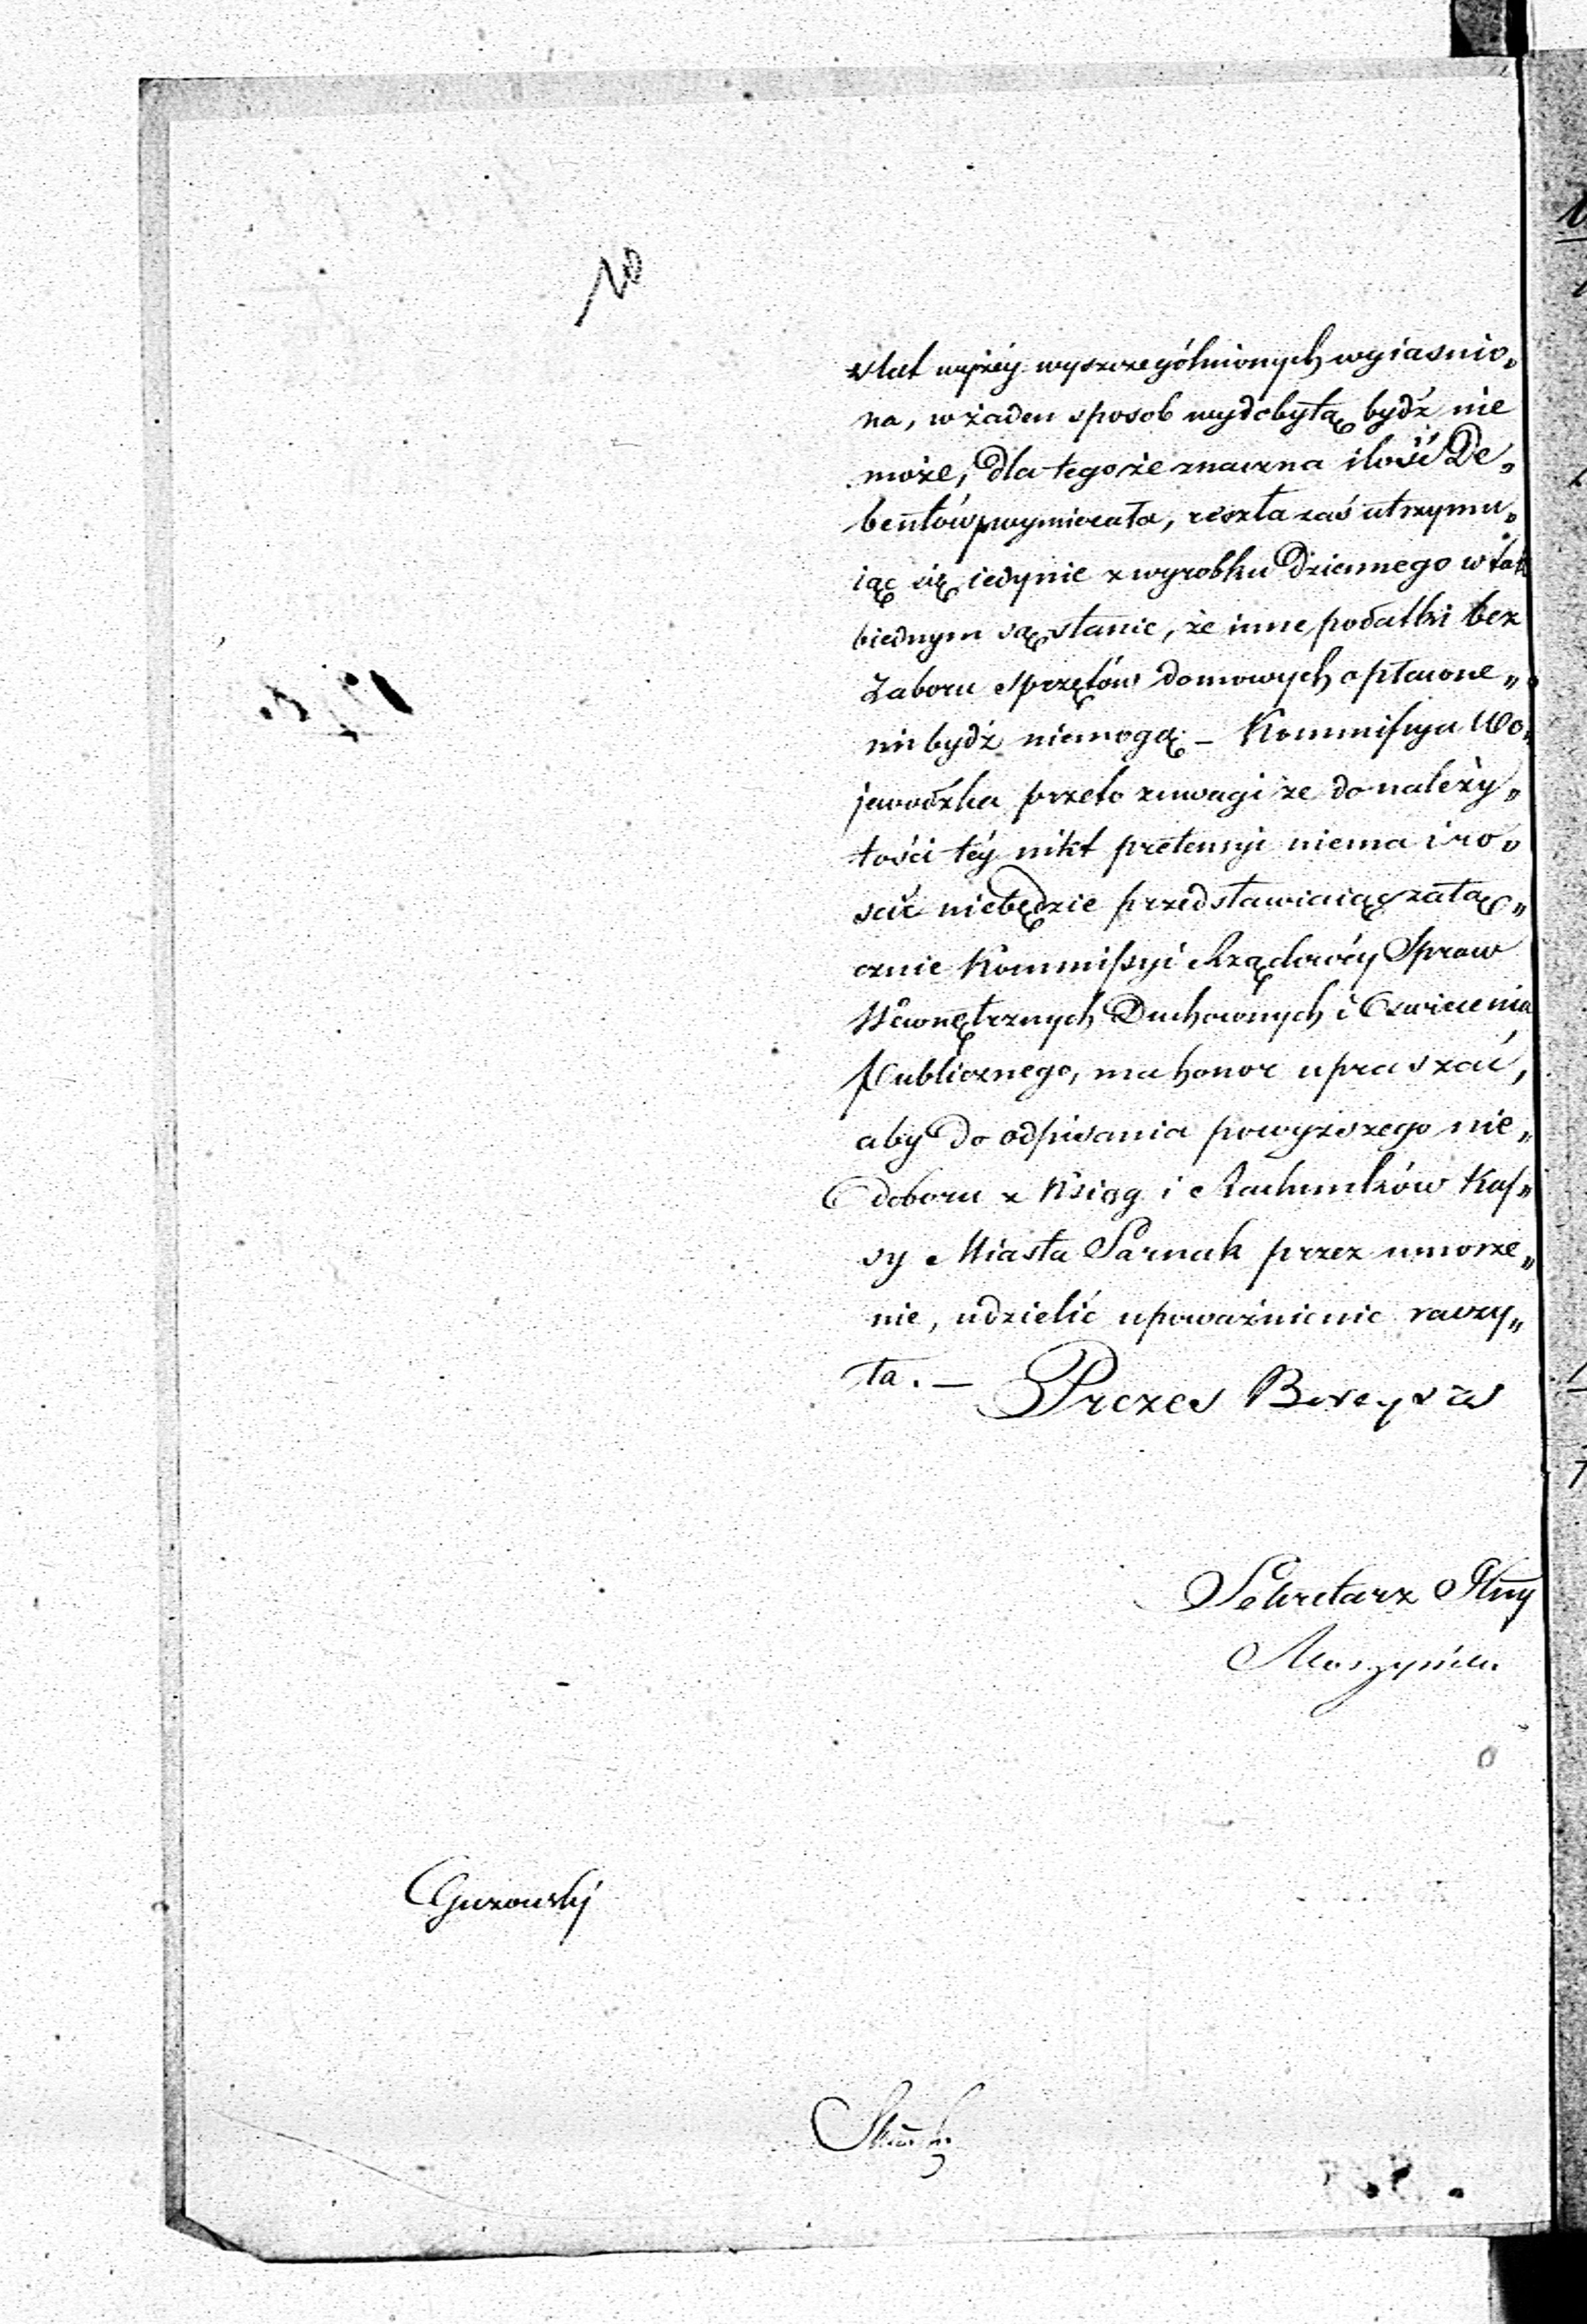 No
z lat wyżéy wyszczególnionych wyiasnio„
na, w żaden sposob wydobytą bydź nie
może, dla tego że znaczna ilość De„
bentów wymierała, reszta zaś utrzymu„
iąc się iedynie z wyrobku dziennego w tak
biednym są stanie, że inne podatki bez
Zaboru sprzętów domowych opłacone„
mi bydź niemogą. – Kommissya Wo„
jewódzka przeto z uwagi że do należy„
tości téy nikt pretensyi niema i ro„
ścić niebędzie przedstawiaiąc załą„
cznie Kommissyi Rządowéy Spraw
Wewnętrznych Duchownych i Oswiecenia
Publicznego, ma honor upraszać,
aby do odpisania powyższego nie„
doboru z Ksiąg i Rachunków Kas„
sy Miasta Sarnak przez umorze„
nie, udzielić upoważnienie raczy„
ła. –
Prezes
Sekretarz Jlny
Guzowski